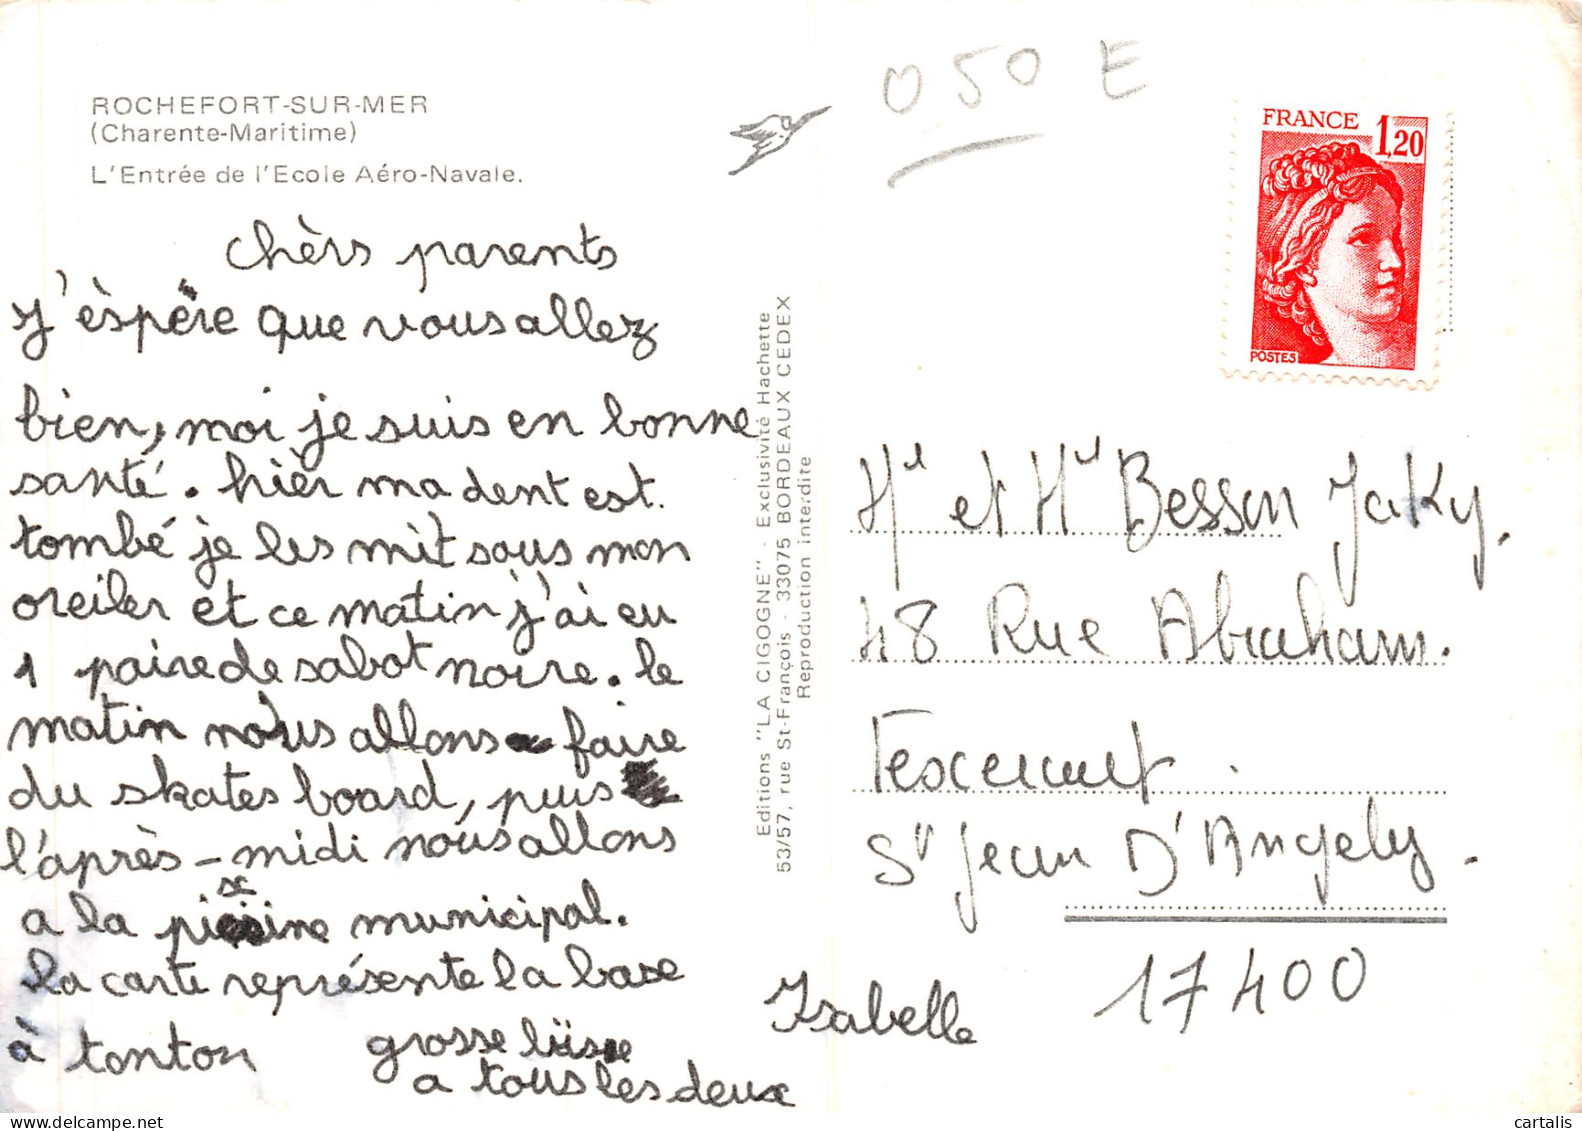 ROCHEFORT-SUR-MER
(Charente-Maritime)
L'Entrée de l'Ecole Aéro-Navale.
chèrs parents
j'èspère que vous allez
bien, moi je suis en bonne
santé. hièr ma dent est.
tombé je les mit sous mon
oreiler et ce matin j'ai eu
1 paire de sabot noire. le
matin nous allons faire
du skates board, puis
l'après-midi nous allons
a la piscine municipal.
la carte représente la base
à tonton
grosse
a tous les deux
Isabelle
Editions "LA CIGOGNE" - Exclusivité Hachette
53/57, rue St-François - 33075 BORDEAUX CEDEX
Reproduction interdite
0 50 E
FRANCE 1,20
POSTES
et Besson Jaky.
48 Rue Abraham.
St Jean D'Angely.
17400
cartalis